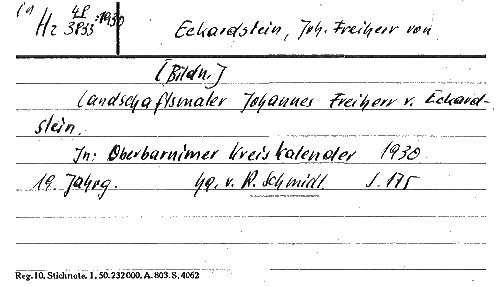 in
Hz 48/3933 :1930
Eckardstein, Joh. Freiherr von
[Bildn.]
Landschaftsmaler Johannes Freiherr v. Eckard-
stein.
In: Oberbarnimer Kreiskalender 1930
19. Jahrg. hg. v. R. Schmidt. S. 175
Reg. 10. Stichnote. 1. 50. 232000. A. 803. S. 4062